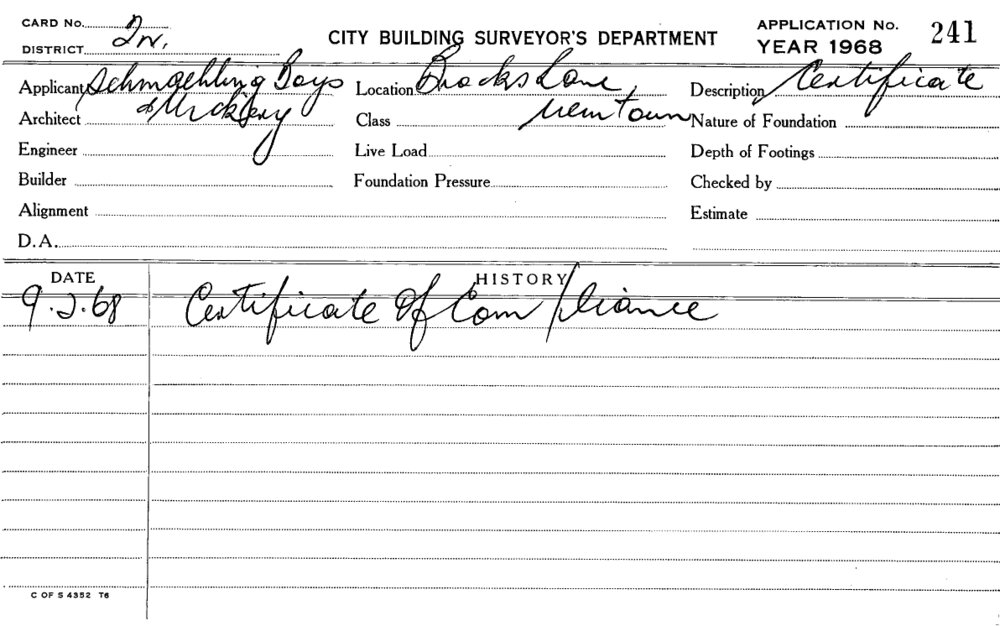 CARD No.
DISTRICT
CITY BUILDING SURVEYOR'S DEPARTMENT
APPLICATION No. 241
YEAR 1968
Applicant Schmaehling Boys
Location Brocks Lane
Description Certificate
Architect &
Class Newtown
Nature of Foundation
Engineer
Live Load
Depth of Footings
Builder
Foundation Pressure
Checked by
Alignment
Estimate
D.A.
DATE
HISTORY
9.2.68 Certificate Of Compliance
C OF S 4352 T6